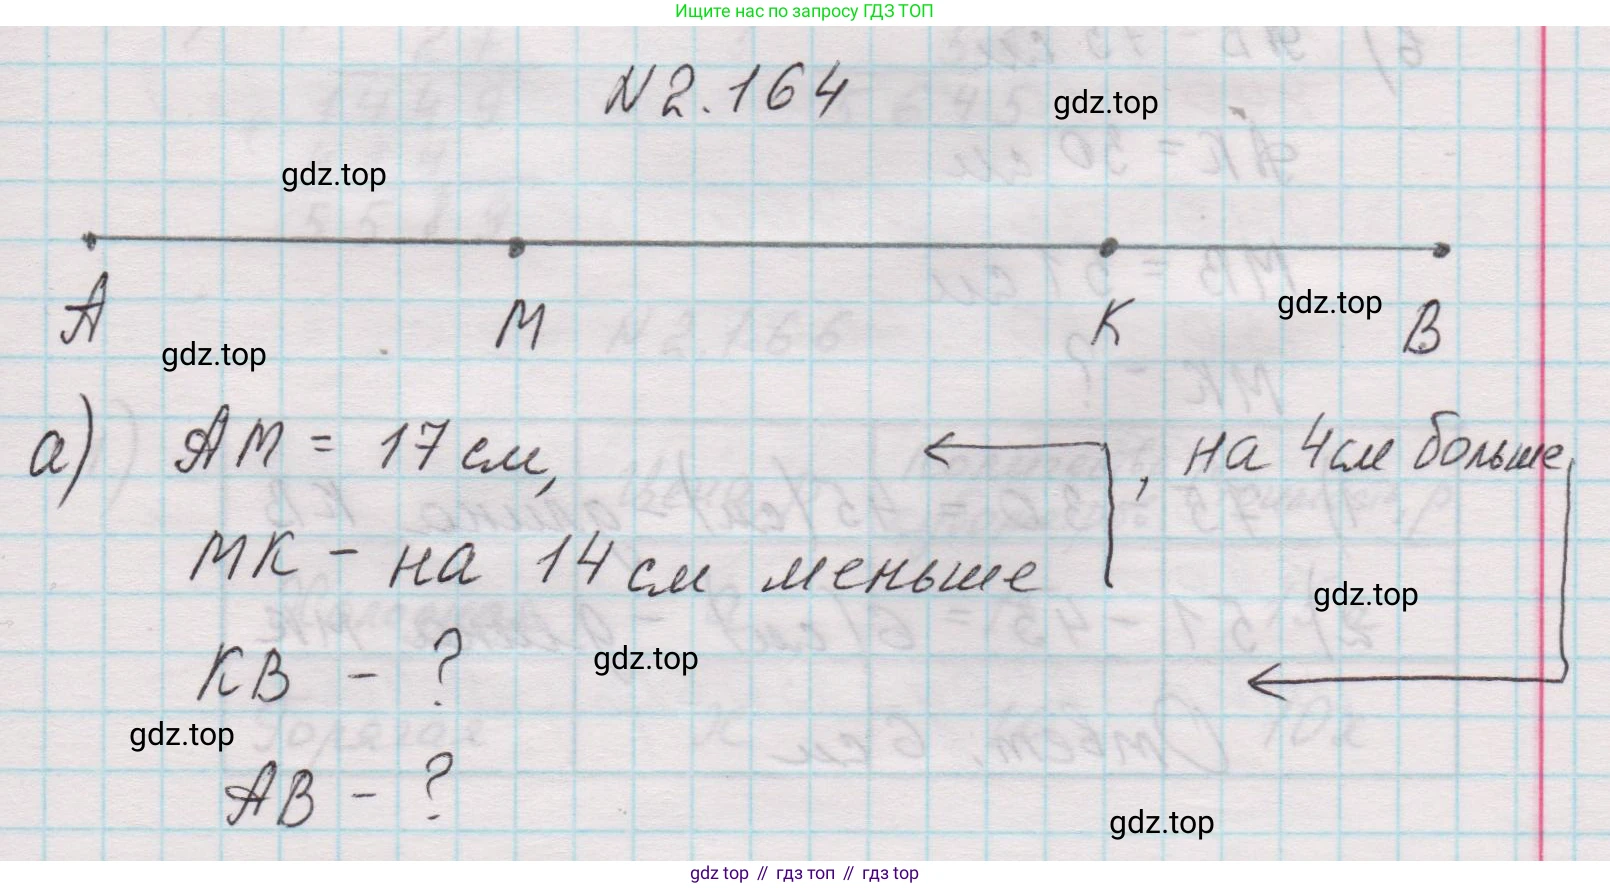 Ищите нас по запросу ГДЗ ТОП
N 2.164
gdz.top
gdz.top
A M K B
gdz.top
gdz.top
а) AM = 17 см, , на 4 см больше
MK - на 14 см меньше
gdz.top
KB - ?
gdz.top
gdz.top
AB - ?
gdz.top
gdz top // гдз топ // гдз top